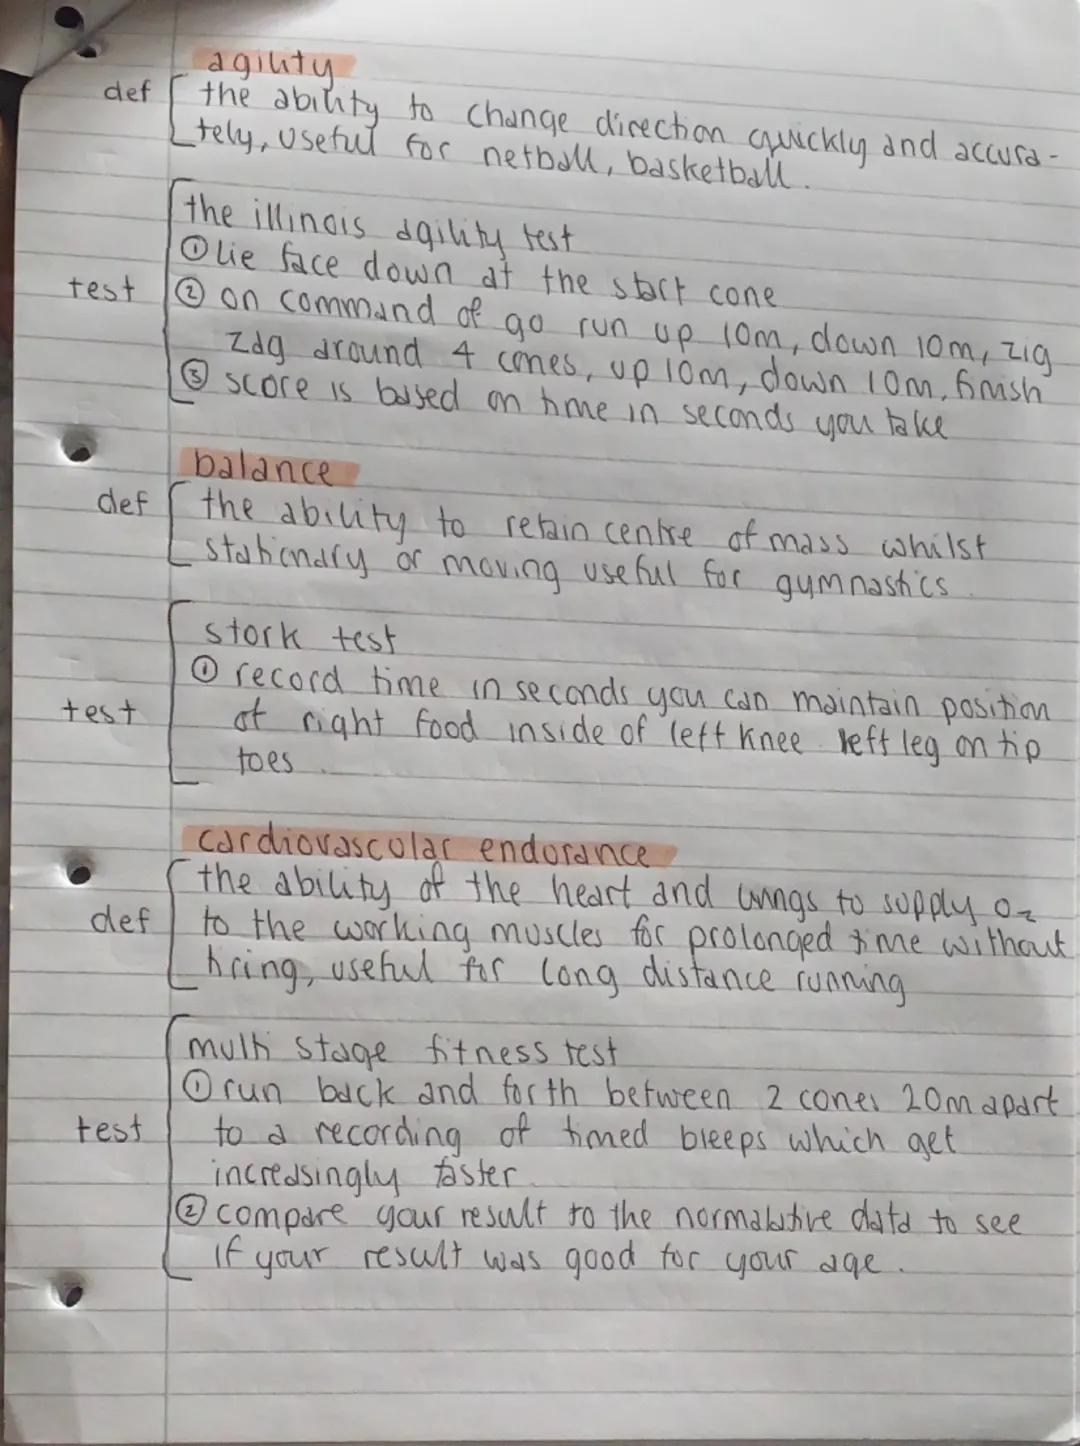 agility
def the ability to change direction quickly and accura-
tely, useful for netball, basketball.
the illinois agility test
① lie face down at the start cone
test ② on command of go run up 10m, down 10m, zig
zag around 4 cones, up 10m, down 10m, finish
③ score is based on time in seconds you take
balance
def the ability to retain centre of mass whilst
stationary or moving useful for gymnastics
stork test
① record time in seconds you can maintain position
test of right food inside of left knee left leg on tip
toes.
cardiovascular endurance
the ability of the heart and lungs to supply O₂
def to the working muscles for prolonged time without
tiring, useful for long distance running
multi stage fitness test
① run back and forth between 2 cones 20m apart
test to a recording of timed bleeps which get
increasingly faster.
② compare your result to the normative data to see
if your result was good for your age.